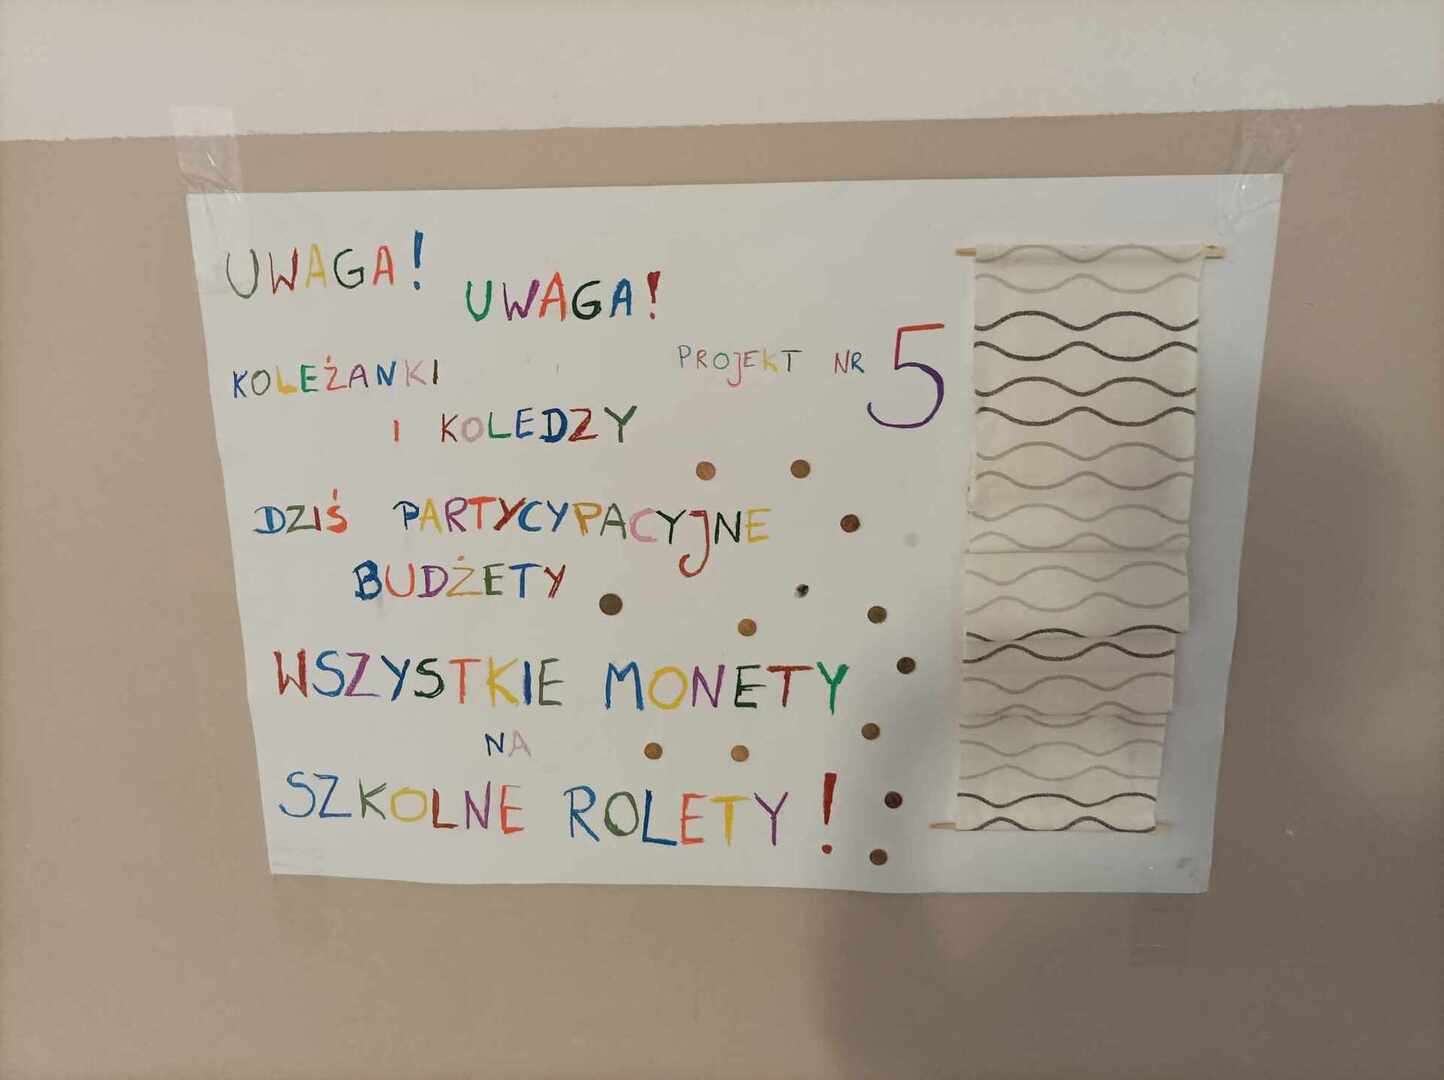 UWAGA!
UWAGA!
KOLEŻANKI
I KOLEDZY
PROJEKT NR 5
DZIŚ PARTYCYPACYJNE
BUDŻETY
WSZYSTKIE MONETY
NA
SZKOLNE ROLETY!